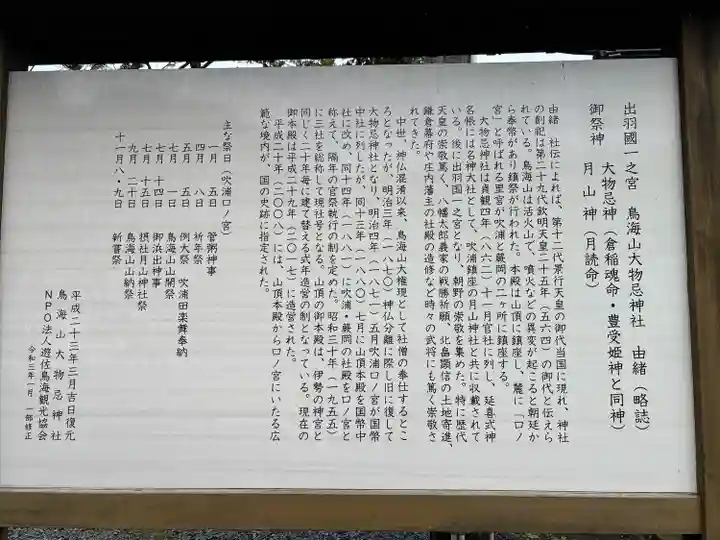 出羽國一之宮　鳥海山大物忌神社　由緒（略誌）
御祭神　大物忌神（倉稲魂命・豊受姫神と同神）
月山神（月読命）
由緒　社伝によれば、第十二代景行天皇の御代当国に現れ、神社
の創祀は第二十九代欽明天皇二十五年（五六四）の御代と伝えら
れている。鳥海山は活火山で、噴火などの異変が起こると朝廷か
ら奉幣があり鎮祭が行われた。本殿は山頂に鎮座し、麓に「口ノ
宮」と呼ばれる里宮が吹浦と蕨岡の二ヶ所に鎮座する。
大物忌神社は貞観四年（八六二）十一月官社に列し、延喜式神
名帳には名神大社として、吹浦鎮座の月山神社と共に収載されて
いる。後に出羽国一之宮となり、朝野の崇敬を集めた。特に歴代
天皇の崇敬篤く、八幡太郎義家の戦勝祈願、北畠顕信の土地寄進、
鎌倉幕府や庄内藩主の社殿の造修など時々の武将にも篤く崇敬さ
れてきた。
中世、神仏混淆以来、鳥海山大権現として社僧の奉仕するとこ
ろとなったが、明治三年（一八七〇）神仏分離に際し旧に復して
大物忌神社となり、明治四年（一八七一）五月吹浦口ノ宮が国幣
中社に列したが、同十三年（一八八〇）七月に山頂本殿を国幣中
社に改め、同十四年（一八八一）に吹浦・蕨岡の社殿を口ノ宮と
称えて、隔年の官祭執行の制を定めた。昭和三十年（一九五五）
に三社を総称して現社号となる。山頂の御本殿は、伊勢の神宮と
同じく二十年毎に建て替える式年造営の制となっている。現在の
御本殿は平成二十九年（二〇一七）に造営された。
平成二十年（二〇〇八）には、山頂本殿から口ノ宮にいたる広
範な境内が、国の史跡に指定された。
主な祭日（吹浦口ノ宮）
一月　五日　管粥神事
四月　八日　祈年祭
五月　五日　例大祭　吹浦田楽舞奉納
七月　一日　鳥海山山開祭
七月　十四日　御浜出神事
七月　十五日　摂社月山神社祭
九月　二十日　鳥海山山納祭
十一月八・九日　新嘗祭
平成二十三年三月吉日復元
鳥海山大物忌神社
ＮＰＯ法人遊佐鳥海観光協会
令和三年一月　一部修正